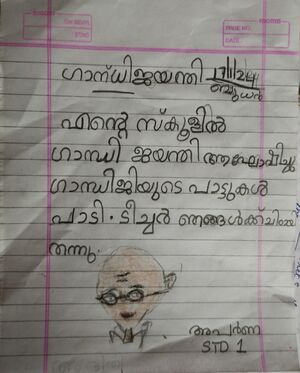 ഗാന്ധിജയന്തി
ബുധൻ
എന്റെ സ്കൂളിൽ
ഗാന്ധി ജയന്തി ആഘോഷിച്ചു
ഗാന്ധിജിയുടെ പാട്ടുകൾ
പാടി. ടീച്ചർ ഞങ്ങൾക്ക്
തന്നു.
അപർണ
STD 1
PAGE NO.
DATE: